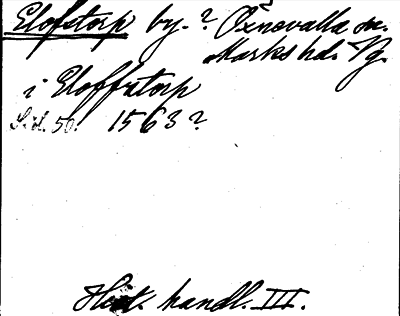 Elofstorp by. ? Öxnevalla sn.
Marks hd. Vg.
i Eloffstorp
Sid. 50. 1563?
Hist. handl. III.